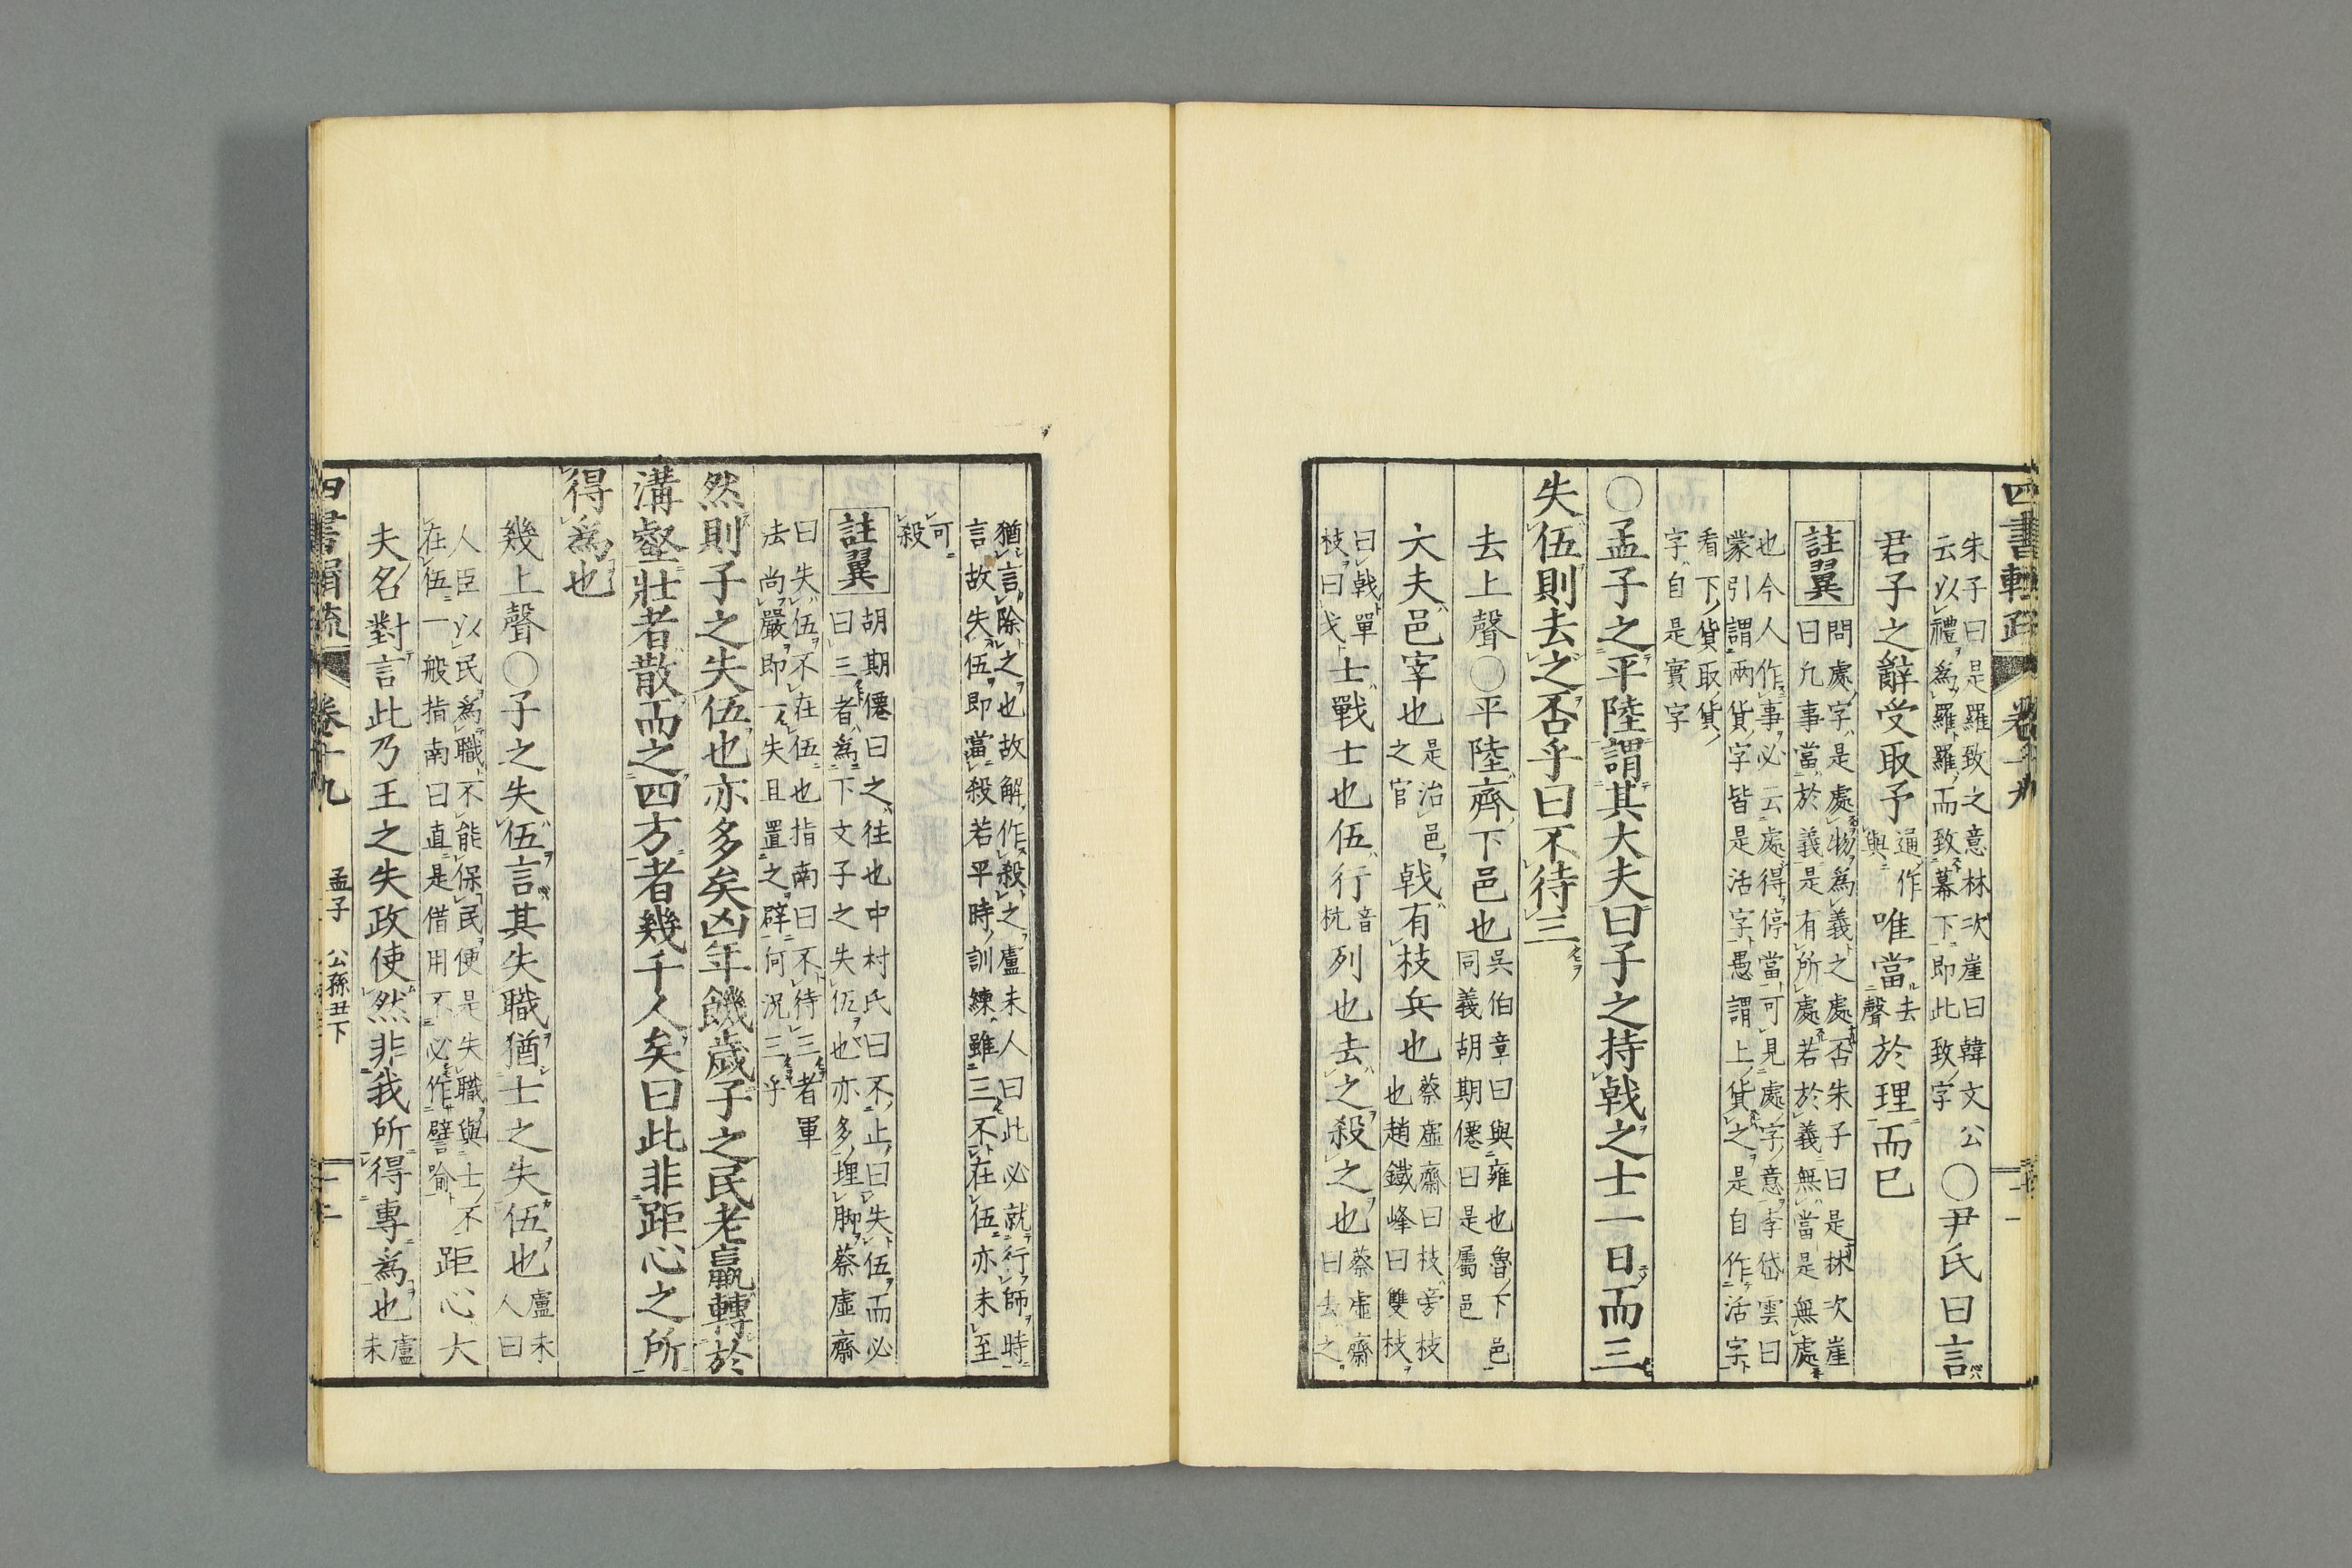 四書輯疏 卷十九
朱子曰是羅致之意林次崖曰韓文公
云以禮爲羅羅而致幕下即此致字
○尹氏曰言
君子之辭受取予通作與唯當去聲於理而已
註翼
問處字是處物爲義之處否朱子曰是林次崖
曰凡事當於義是有所處若於義無當是無處
也今人作事必云處得停當可見處字意李岱雲曰
蒙引謂兩貨字皆是活字愚謂上貨之是自作活字
看下貨取貨
字自是實字
○孟子之平陸謂其大夫曰子之持戟之士一日而三
失伍則去之否乎曰不待三
去上聲○平陸齊下邑也
吳伯章曰與雍也魯下邑
同義胡期僊曰是屬邑
大夫邑宰也是治邑之官戟有枝兵也
蔡虛齋曰枝旁枝
也趙鐵峰曰雙枝
曰戟單
枝曰戈
士戰士也伍行音杭列也去之殺之也
蔡虛齋
曰去之
猶言除之也故解作殺之盧未人曰此必就行師時
言故失伍即當殺若平時訓練雖三不在伍亦未至
可
殺
註翼
胡期僊曰之往也中村氏曰不止曰失伍而必
曰三者爲下文子之失伍也亦多埋脚蔡虛齋
曰失伍不在伍也指南曰不待三者軍
法尚嚴即一失且置之辟何況三乎
然則子之失伍也亦多矣凶年饑歲子之民老羸轉於
溝壑壯者散而之四方者幾千人矣曰此非距心之所
得爲也
幾上聲○子之失伍言其失職猶士之失伍也
盧未
人曰
人臣以民爲職不能保民便是失職與士不
在伍一般指南曰直是借用不必作譬喻
距心大
夫名對言此乃王之失政使然非我所得專爲也
盧
未
四書輯疏 卷十九 孟子 公孫丑下